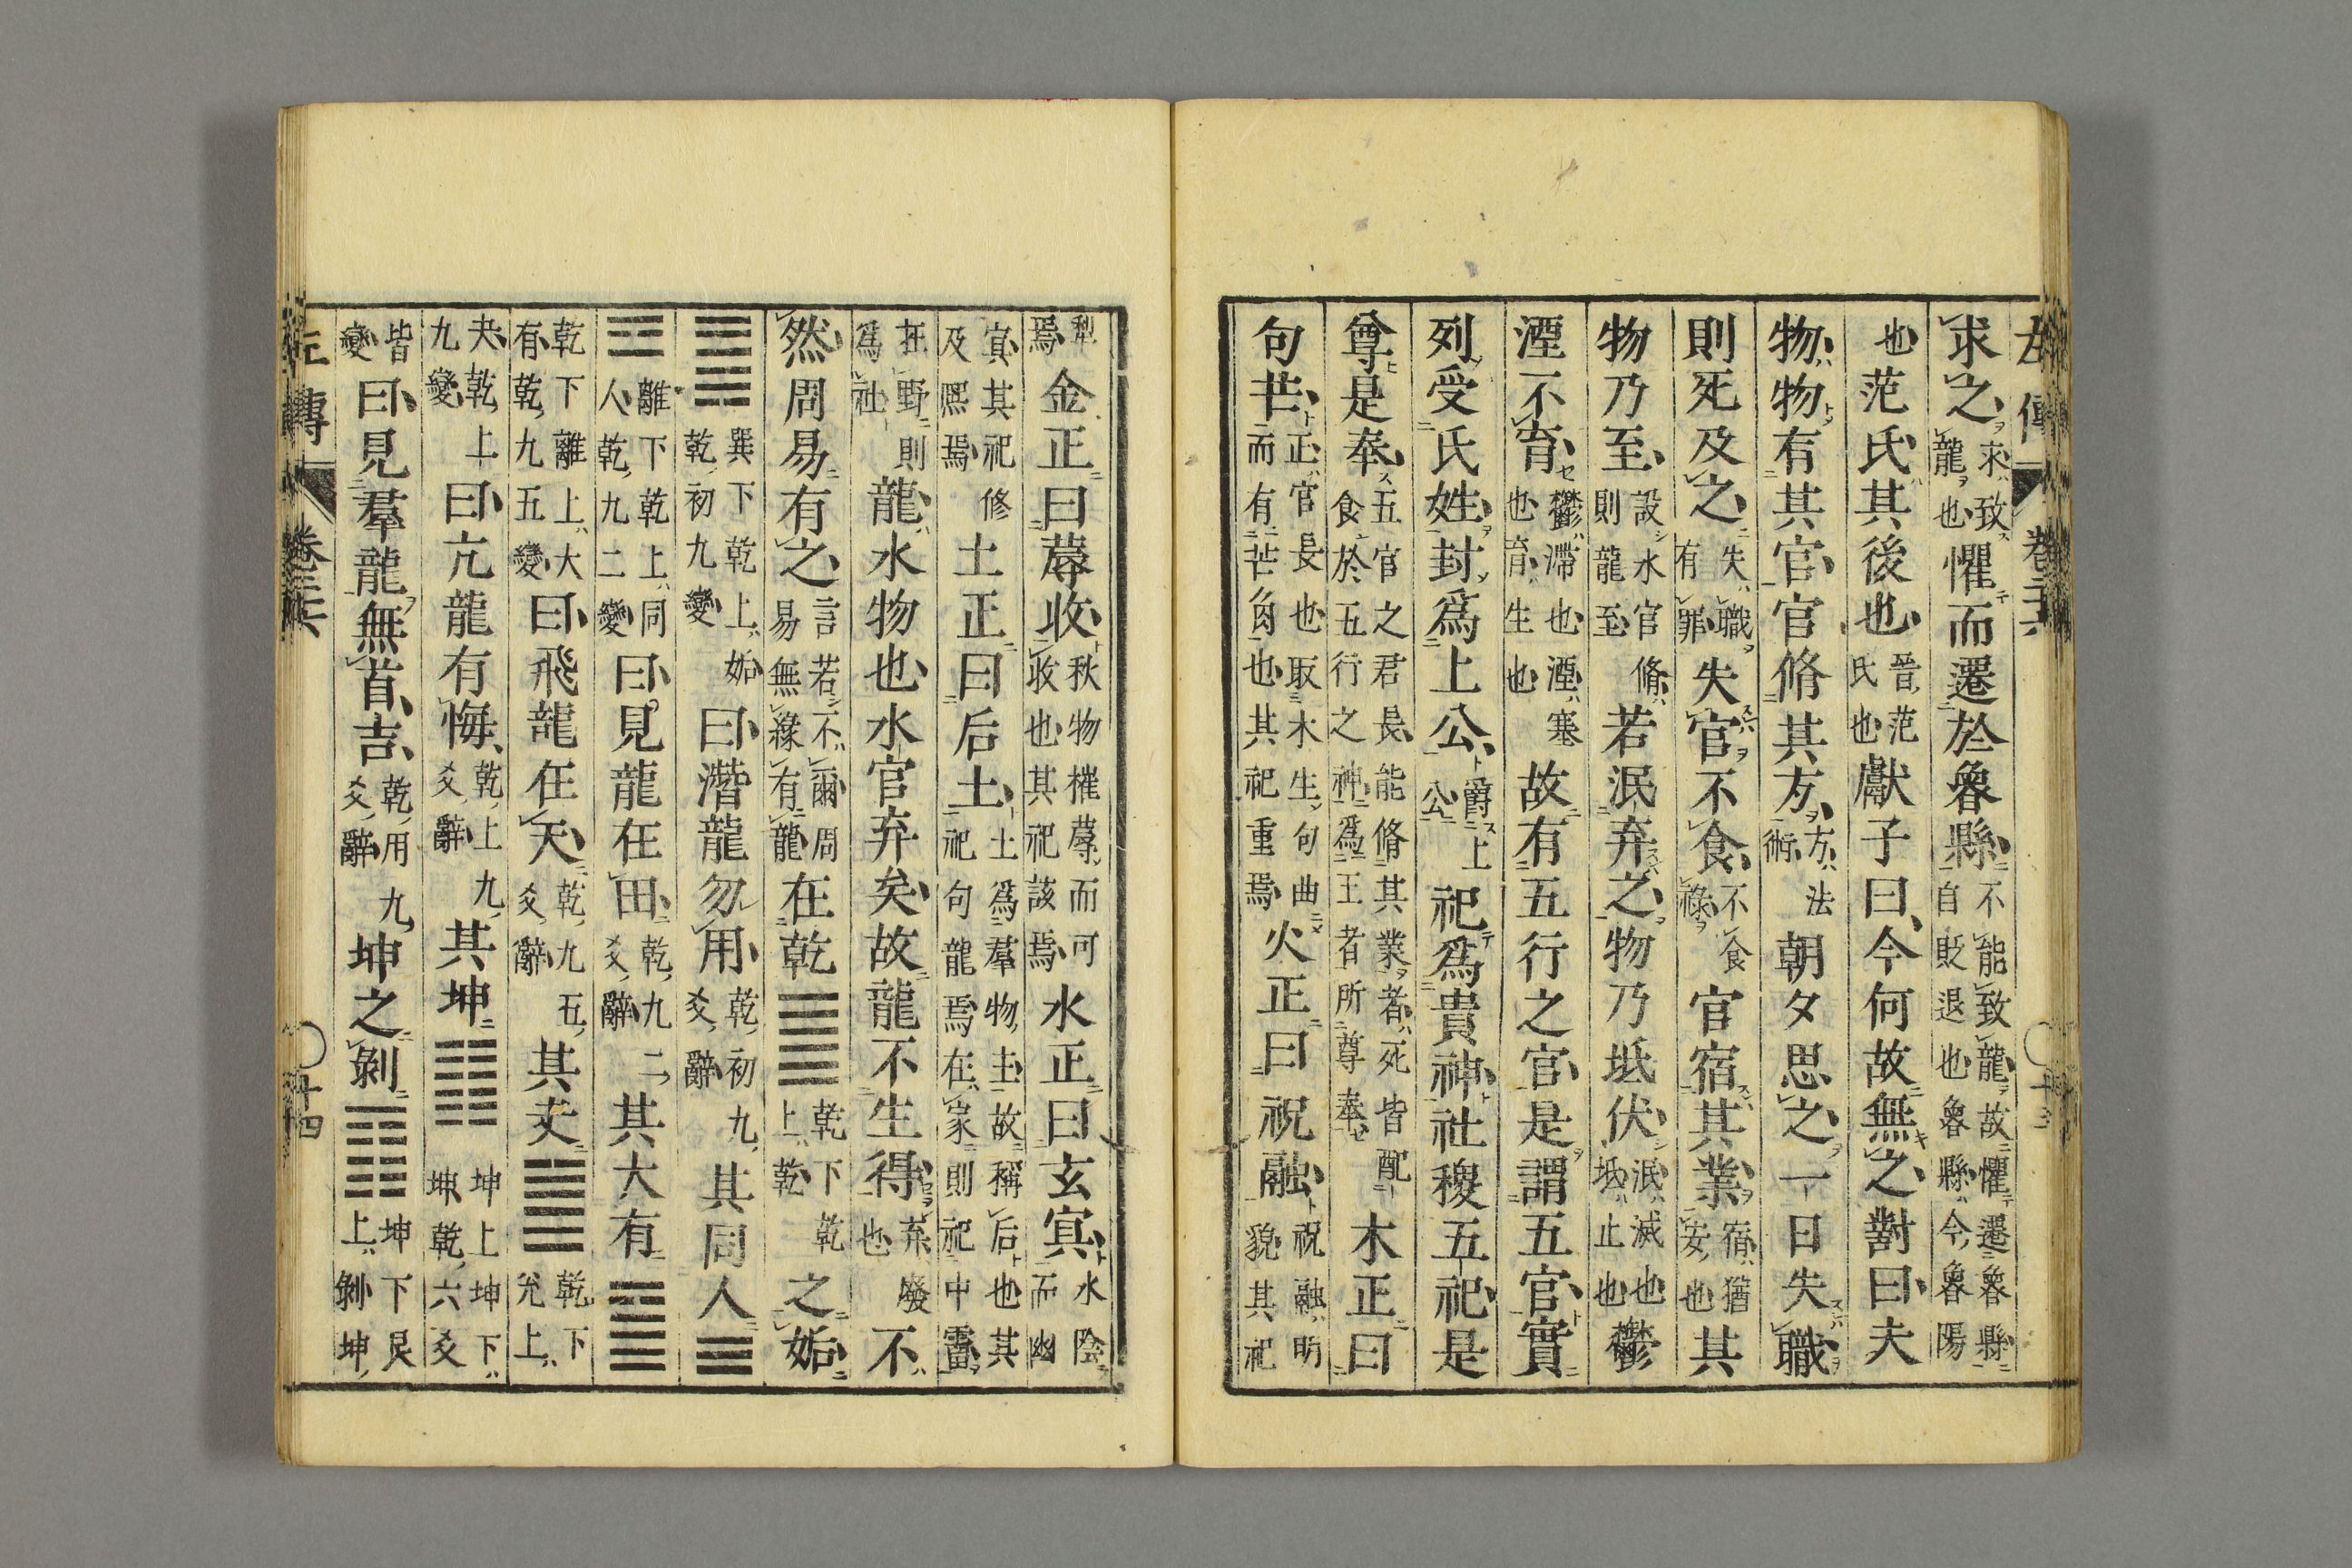 左傳 卷二十六 十三
求之求致龍也懼而遷於魯縣不能致龍故懼遷魯縣自貶退也魯縣今魯陽
也范氏其後也晉范氏也獻子曰今何故無之對曰夫
物物有其官官脩其方方法術朝夕思之一日失職
則死及之失職有罪失官不食不食祿官宿其業宿猶安也其
物乃至設水官脩則龍至若泯弃之物乃坻伏泯滅也坻止也鬱
湮不育鬱滯也湮塞也育生也故有五行之官是謂五官實
列受氏姓封爲上公爵上公祀爲貴神社稷五祀是
尊是奉五官之君長能脩其業者死皆配食於五行之神爲王者所尊奉木正曰
句芒正官長也取木生句曲而有芒角也其祀重焉火正曰祝融祝融明貌其祀
犁焉金正曰蓐收秋物摧蓐而可收也其祀該焉水正曰玄冥水陰而幽
冥其祀修及熙焉土正曰后土土爲羣物主故稱后也其祀句龍焉在家則祀中霤
在野則爲社龍水物也水官弃矣故龍不生得弃廢也不
然周易有之言若不爾周易無緣有龍在乾䷀乾下乾上乾之姤
䷫巽下乾上姤乾初九變曰潛龍勿用乾初九爻辭其同人䷌
離下乾上同人乾九二變曰見龍在田乾九二爻辭其大有䷍
乾下離上大有乾九五變曰飛龍在天乾九五爻辭其夬䷪乾下兌上
夬乾上九變曰亢龍有悔乾上九爻辭其坤䷁坤上坤下坤乾六爻
皆變曰見羣龍無首吉乾用九爻辭坤之剝䷖坤下艮上剝坤
左傳 卷二十六 十四